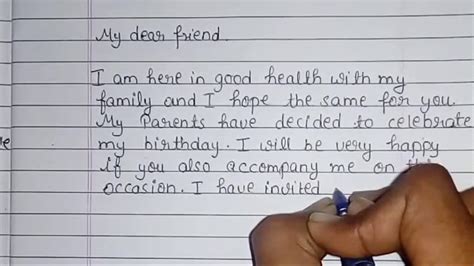 My dear friend.
I am here in good health with my
family and I hope the same for you.
My Parents have decided to celebrate
my birthday. I will be very happy
if you also accompany me on
occasion. I have invited